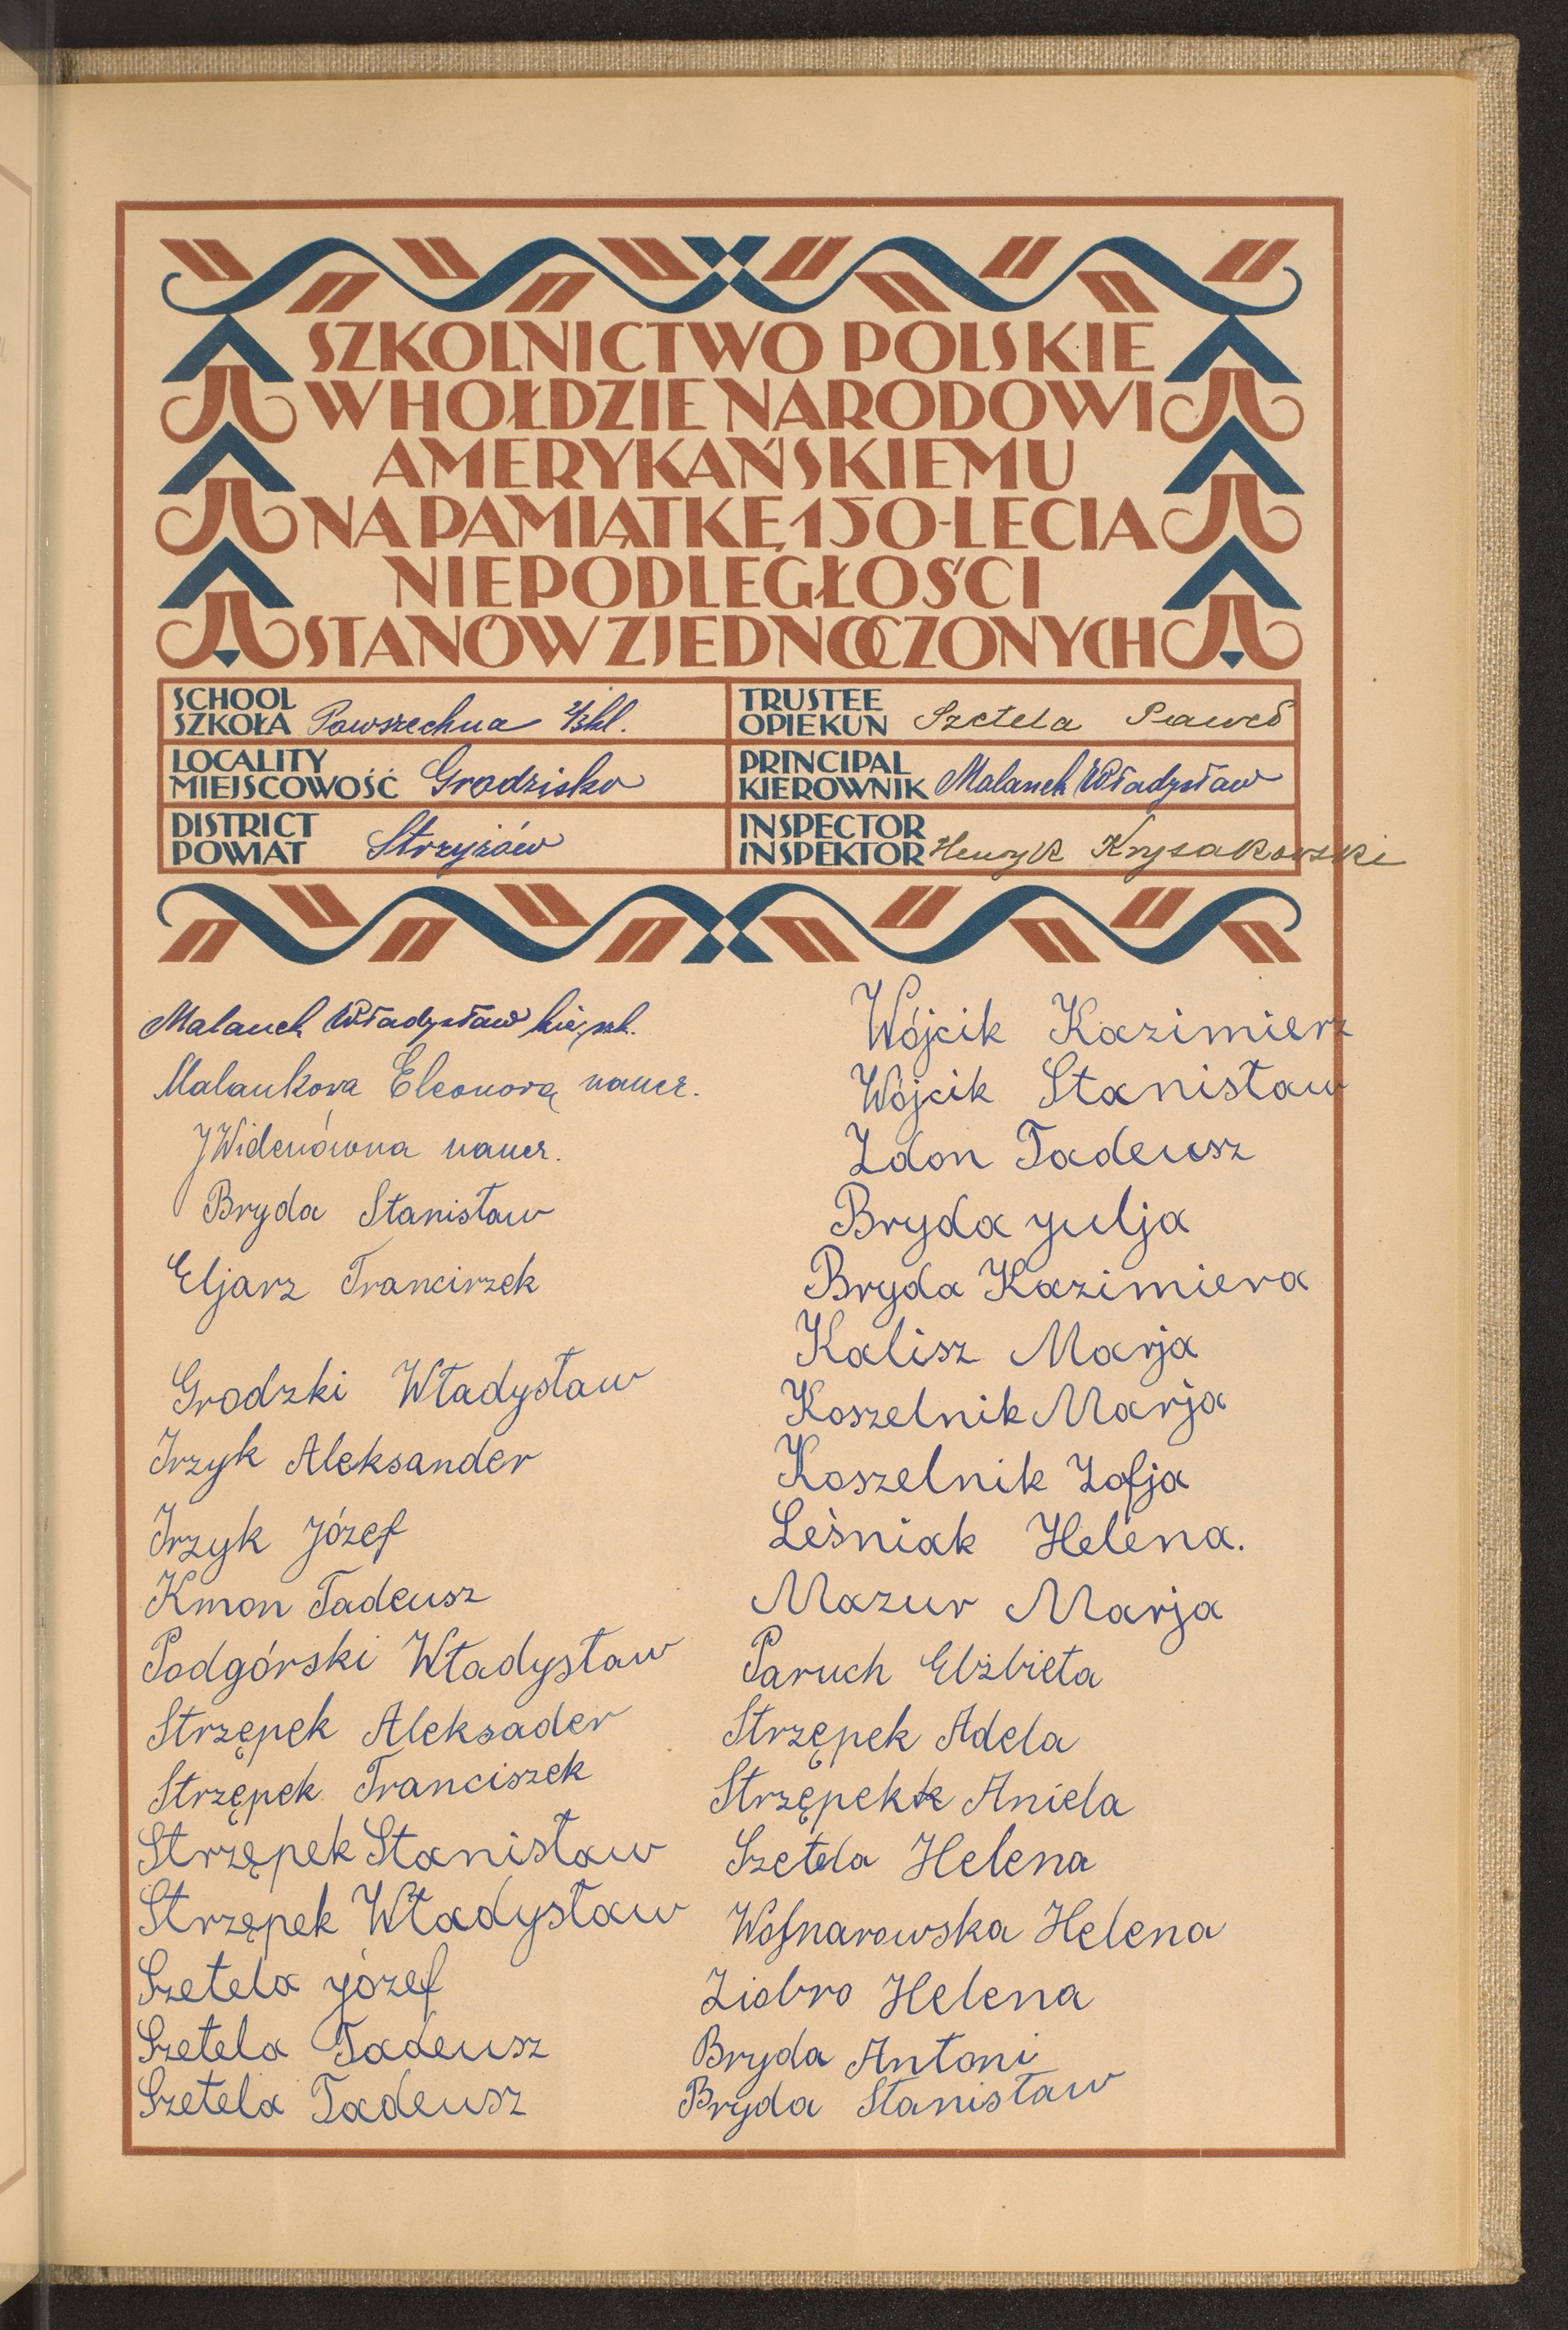 SZKOLNICTWO POLSKIE
W HOŁDZIE NARODOWI
AMERYKAŃSKIEMU
NA PAMIĄTKĘ 150-LECIA
NIEPODLEGŁOŚCI
STANÓW ZJEDNOCZONYCH
SCHOOL
SZKOŁA Powszechna 2/3kl.
LOCALITY
MIEJSCOWOŚĆ Grodzisko
DISTRICT
POWIAT Strzyżów
TRUSTEE
OPIEKUN Szetela Paweł
PRINCIPAL
KIEROWNIK Malanek Władysław
INSPECTOR
INSPEKTOR Henryk Krysakowski
Malanek Władysław kier. szk.
Malankowa Eleonora naucz.
J Widenówna naucz.
Bryda Stanisław
Eljarz Francirzek
Grodzki Władysław
Irzyk Aleksander
Irzyk Józef
Kmon Tadeusz
Podgórski Władysław
Strzępek Aleksader
Strzępek Franciszek
Strzępek Stanisław
Strzępek Władysław
Szetela józef
Szetela Tadeusz
Szetela Tadeusz
Wójcik Kazimierz
Wójcik Stanisław
Zdon Tadeusz
Bryda yulja
Bryda Kazimiera
Kalisz Marja
Koszelnik Marja
Koszelnik Zofja
Leśniak Helena.
Mazur Marja
Paruch Elżbieta
Strzępek Adela
Strzępek Aniela
Szetela Helena
Wojnarowska Helena
Ziobro Helena
Bryda Antoni
Bryda Stanisław